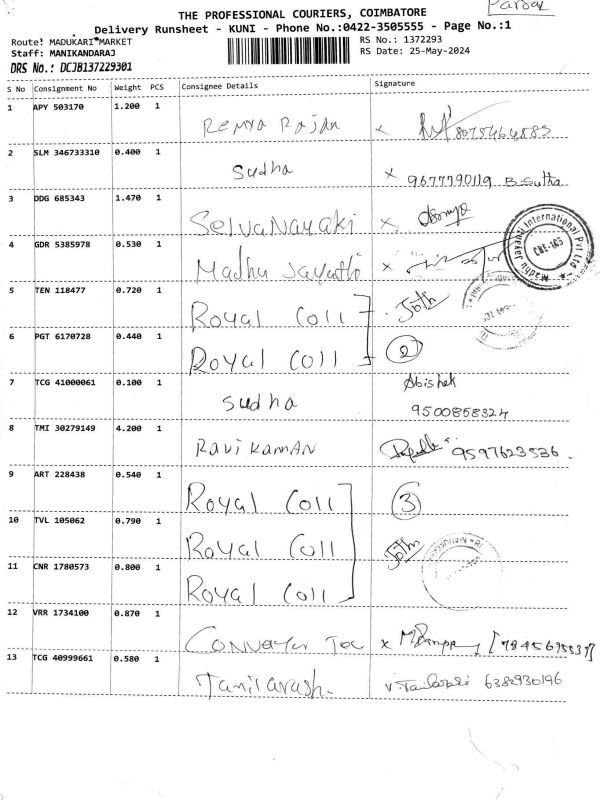 Parsal
THE PROFESSIONAL COURIERS, COIMBATORE
Delivery Runsheet - KUNI - Phone No.:0422-3505555 - Page No.:1
Route: MADUKARI MARKET
RS No.: 1372293
Staff: MANIKANDARAJ
RS Date: 25-May-2024
DRS No.: DCJB137229301
S No Consignment No Weight PCS Consignee Details Signature
1 APY 503170 1.200 1 Remya Rajan x 8075464583
2 SLM 346733310 0.400 1 Sudha x 9677790119 B. Sutha
3 DDG 685343 1.470 1 Selvanayaki x
4 GDR 5385978 0.530 1 Madhu Jayanthi x
Madhu Jayanthi International Pvt Ltd
CBE-105
5 TEN 118477 0.720 1 Royal Coll Joth
6 PGT 6170728 0.440 1 Royal Coll 2
7 TCG 41000061 0.100 1 Sudha Abishek
9500858324
8 TMI 30279149 4.200 1 Ravi Kaman 9597623536.
9 ART 228438 0.540 1 Royal Coll 3
10 TVL 105062 0.790 1 Royal Coll Joth
11 CNR 1780573 0.800 1 Royal Coll
12 VRR 1734100 0.870 1 Conveyor Tec x
13 TCG 40999661 0.580 1 Tamilarash. 6382930196